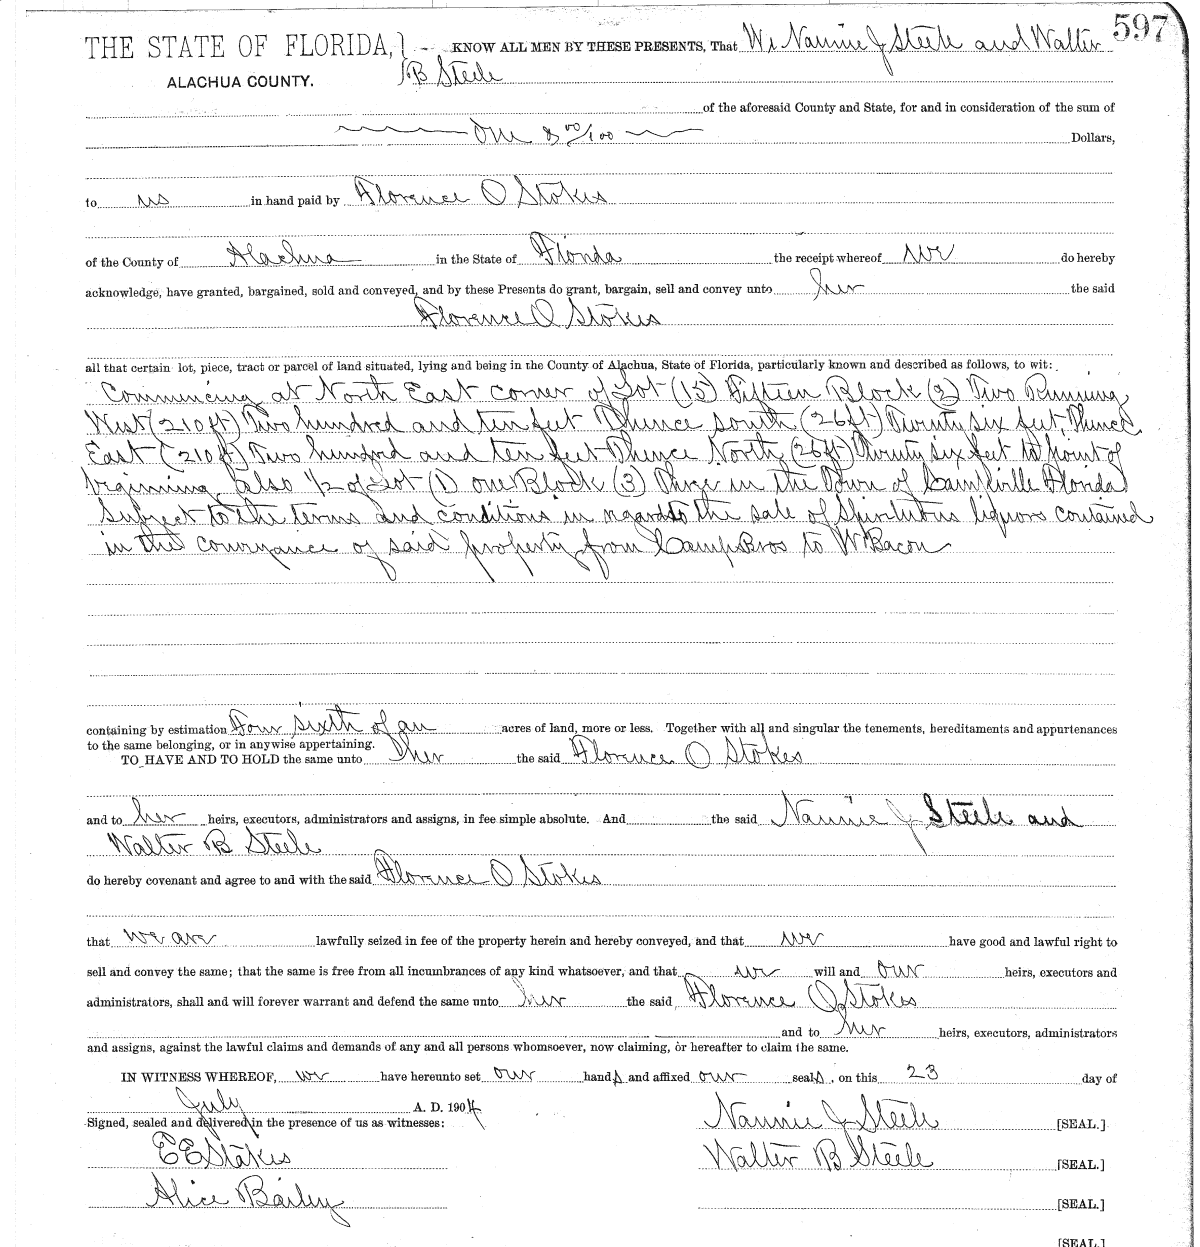 597
THE STATE OF FLORIDA,} KNOW ALL MEN BY THESE PRESENTS, That We Nannie J Steele and Walter
ALACHUA COUNTY. B Steele
of the aforesaid County and State, for and in consideration of the sum of
One & 00/100 Dollars,
to us in hand paid by Florence O Stokes
of the County of Alachua in the State of Florida the receipt whereof we do hereby
acknowledge, have granted, bargained, sold and conveyed, and by these Presents do grant, bargain, sell and convey unto her the said
Florence O Stokes
all that certain lot, piece, tract or parcel of land situated, lying and being in the County of Alachua, State of Florida, particularly known and described as follows, to wit:
Commencing at North East corner of Lot (15) Fifteen Block (2) Two Running
West (210ft) Two hundred and ten feet Thence south (26ft) Twenty six feet Thence
East (210ft) Two hundred and ten feet Thence North (26ft) Twenty six feet to point of
beginning also 1/2 of Lot (1) one Block (3) Three in the Town of Campville Florida
Subject to the terms and conditions in regards to the sale of Spiritutous liquors contained
in the conveyance of said property from Camp Bros to W Bacon
containing by estimation Four sixth of an acres of land, more or less. Together with all and singular the tenements, hereditaments and appurtenances
to the same belonging, or in anywise appertaining.
TO HAVE AND TO HOLD the same unto her the said Florence O Stokes
and to her heirs, executors, administrators and assigns, in fee simple absolute. And the said Nannie J Steele and
Walter B Steele
do hereby covenant and agree to and with the said Florence O Stokes
that we are lawfully seized in fee of the property herein and hereby conveyed, and that we have good and lawful right to
sell and convey the same; that the same is free from all incumbrances of any kind whatsoever, and that we will and our heirs, executors and
administrators, shall and will forever warrant and defend the same unto her the said Florence O Stokes
and to her heirs, executors, administrators
and assigns, against the lawful claims and demands of any and all persons whomsoever, now claiming, or hereafter to claim the same.
IN WITNESS WHEREOF, we have hereunto set our hands and affixed our seals, on this 23 day of
July A. D. 1904
Signed, sealed and delivered in the presence of us as witnesses: Nannie J Steele [SEAL.]
E E Stokes Walter B Steele [SEAL.]
Alice Bailey [SEAL.]
[SEAL.]